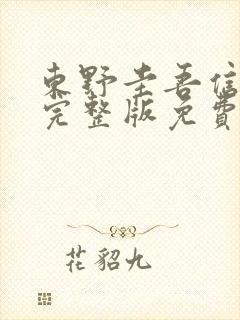 東野圭吾信
完整版免費
花貂九